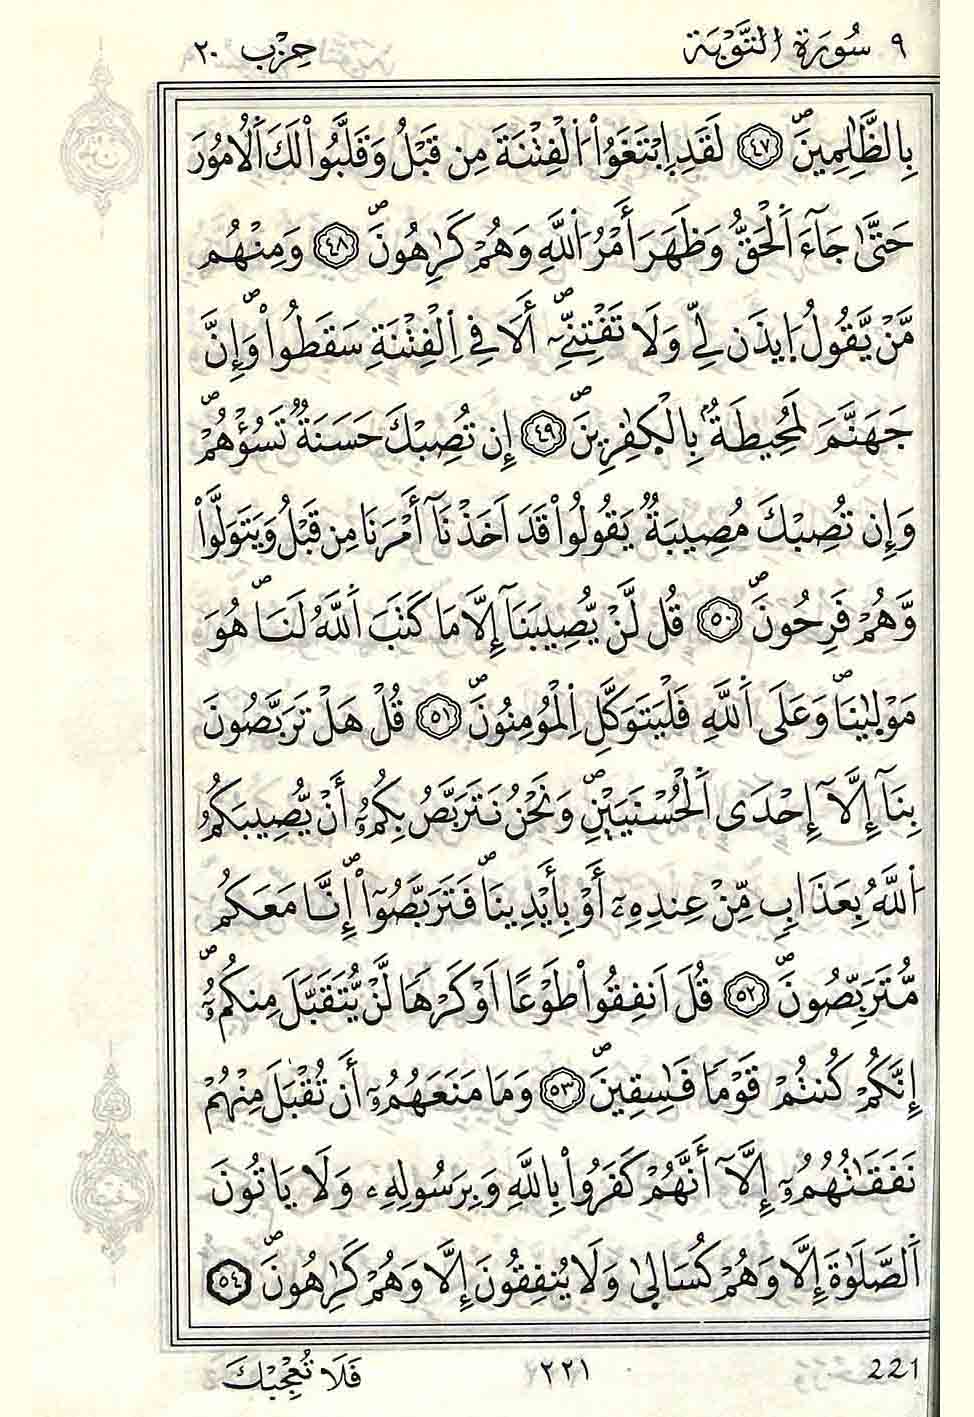 ٩ سُورَةُ التَّوْبَةِ حِزْب ٢٠
بِالظَّٰلِمِينَۖ ٤٧ لَقَدِ اِبْتَغَوُاْ اُلْفِتْنَةَ مِن قَبْلُ وَقَلَّبُواْ لَكَ اَلُامُورَ
حَتَّىٰ جَآءَ اَلْحَقُّ وَظَهَرَ أَمْرُ اُللَّهِ وَهُمْ كَٰرِهُونَۖ ٤٨ وَمِنْهُم
مَّنْ يَّقُولُ اُ۪يذَن لِّے وَلَا تَفْتِنِّےۖ أَلَا فِے اِلْفِتْنَةِ سَقَطُواْۖ وَإِنَّ
جَهَنَّمَ لَمُحِيطَةُۢ بِالْكٰ۪فِرِينَۖ ٤٩ إِن تُصِبْكَ حَسَنَةٌ تَسُؤْهُمْۖ
وَإِن تُصِبْكَ مُصِيبَةٌ يَقُولُواْ قَدَ اَخَذْنَآ أَمْرَنَا مِن قَبْلُ وَيَتَوَلَّواْ
وَّهُمْ فَرِحُونَۖ ٥٠ قُل لَّنْ يُّصِيبَنَآ إِلَّا مَا كَتَبَ اَللَّهُ لَنَاۖ هُوَ
مَوْل۪يٰنَاۖ وَعَلَى اَللَّهِ فَلْيَتَوَكَّلِ اِلْمُومِنُونَۖ ٥١ قُلْ هَلْ تَرَبَّصُونَ
بِنَآ إِلَّآ إِحْدَى اَلْحُسْنَيَيْنِۖ وَنَحْنُ نَتَرَبَّصُ بِكُمُۥٓ أَنْ يُّصِيبَكُمُ
اُللَّهُ بِعَذَابٍ مِّنْ عِندِهِۦٓ أَوْ بِأَيْدِينَاۖ فَتَرَبَّصُوٓاْۖ إِنَّا مَعَكُم
مُّتَرَبِّصُونَۖ ٥٢ قُلَ اَنفِقُواْ طَوْعًا اَوْ كَرْهًا لَّنْ يُّتَقَبَّلَ مِنكُمُۥٓۖ
إِنَّكُمْ كُنتُمْ قَوْمًا فَٰسِقِينَۖ ٥٣ وَمَا مَنَعَهُمُۥٓ أَن تُقْبَلَ مِنْهُمْ
نَفَقَٰتُهُمُۥٓ إِلَّآ أَنَّهُمْ كَفَرُواْ بِاللَّهِ وَبِرَسُولِهِۦ وَلَا يَاتُونَ
اَلصَّلَوٰةَ إِلَّا وَهُمْ كُسَال۪يٰ وَلَا يُنفِقُونَ إِلَّا وَهُمْ كَٰرِهُونَۖ ٥٤
221 ٢٢١ فَلَا تُعْجِبْكَ